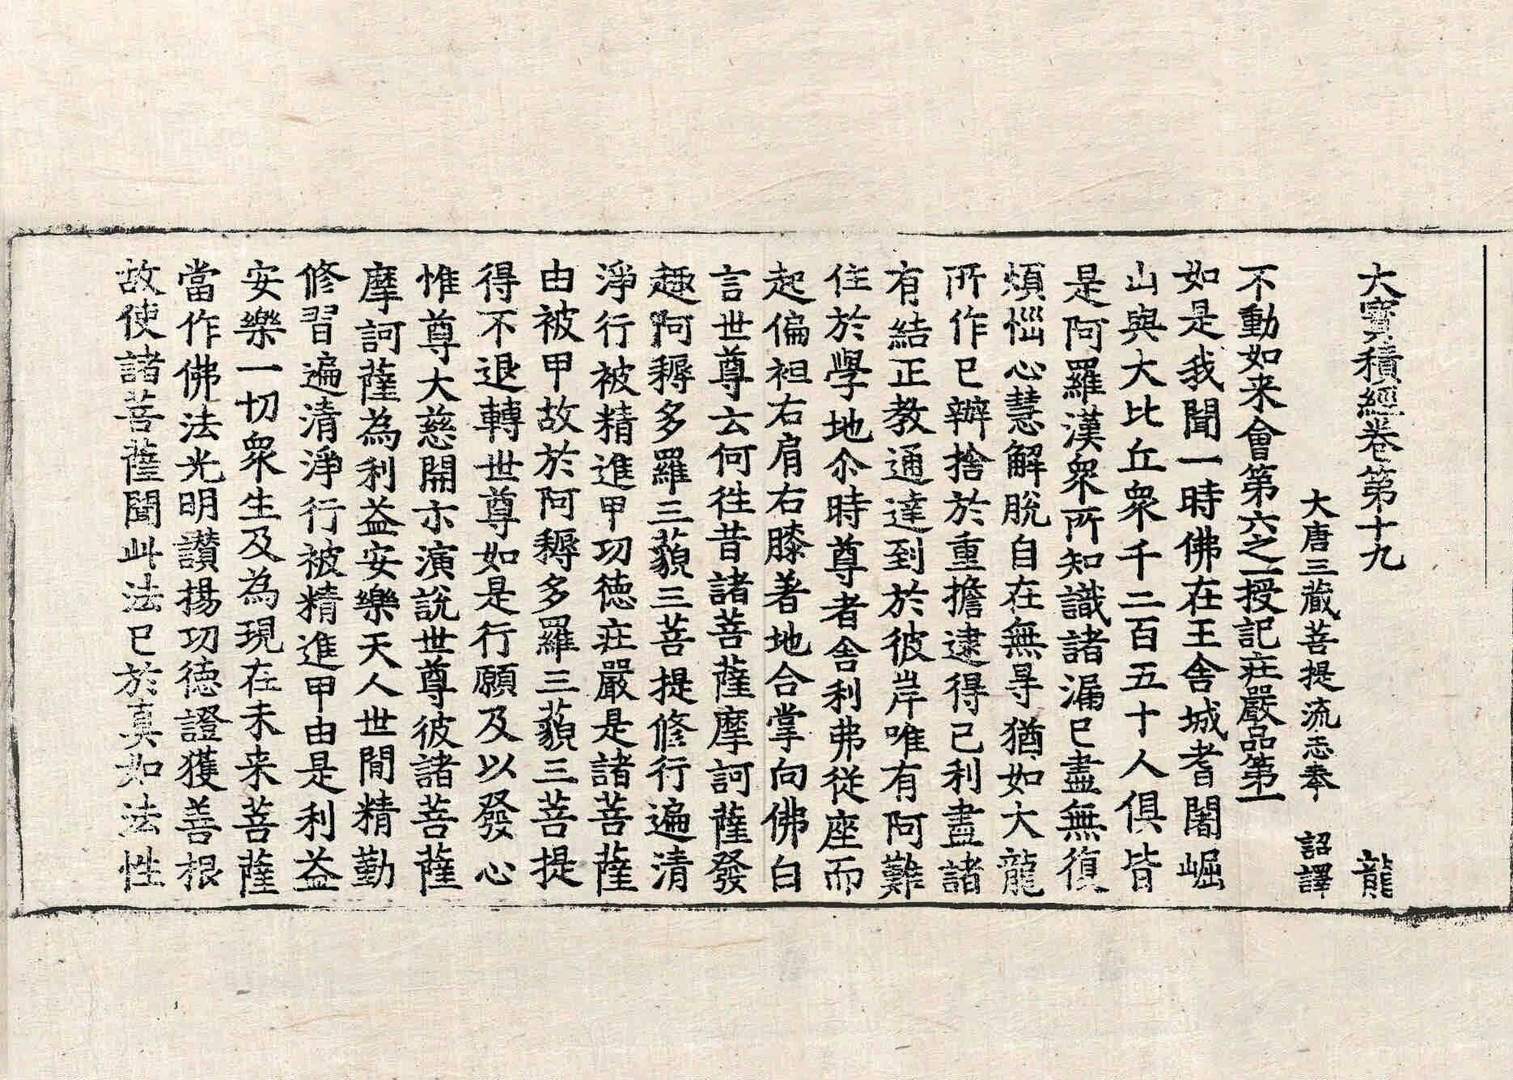 大寶積經卷第十九　龍
大唐三藏菩提流志奉　詔譯
不動如来會第六之一授記庄嚴品第一
如是我聞一時佛在王舍城耆闍崛
山與大比丘衆千二百五十人俱皆
是阿羅漢衆所知識諸漏已盡無復
煩惱心慧解脫自在無㝵猶如大龍
所作已辦捨於重擔逮得己利盡諸
有結正教通達到於彼岸唯有阿難
住於學地尒時尊者舍利弗従座而
起偏袒右肩右膝著地合掌向佛白
言世尊云何徃昔諸菩薩摩訶薩發
趣阿耨多羅三藐三菩提修行遍清
淨行被精進甲功徳庄嚴是諸菩薩
由被甲故於阿耨多羅三藐三菩提
得不退轉世尊如是行願及以發心
惟尊大慈開示演説世尊彼諸菩薩
摩訶薩為利益安樂天人世間精勤
修習遍清淨行被精進甲由是利益
安樂一切衆生及為現在未来菩薩
當作佛法光明讃揚功徳證獲善根
故使諸菩薩聞此法已於真如法性